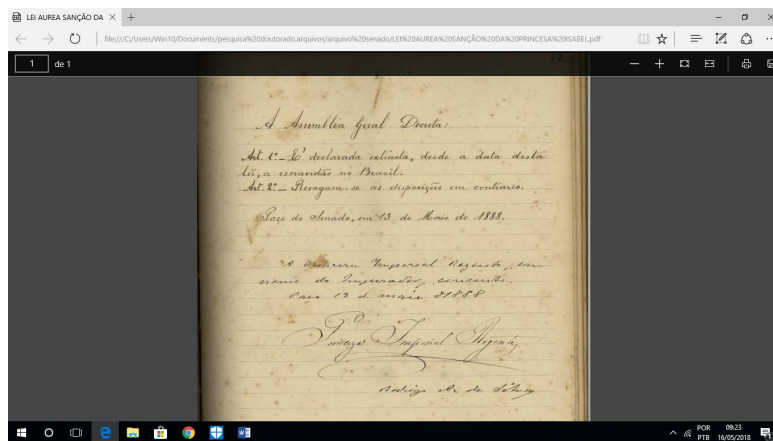 LEI AUREA SANÇÃO DA
file:///C:/Users/Win10/Documents/pesquisa%20doutorado.arquivos/arquivo%20senado/LEI%20AUREA%20SANÇÃO%20DA%20PRINCESA%20ISABEL.pdf
1 de 1
22
A Assembléa Geral Decreta:
Art. 1º _ E' declarada extincta, desde a data desta
lei, a escravidão no Brazil.
Art. 2º _ Revogam-se as disposições em contrario.
Paço do Senado, em 13 de Maio de 1888.
A Princeza Imperial Regente, em
nome do Imperador, consente.
Paço 13 d maio d1888
Princeza Imperial Regente
Rodrigo A. da Silva
W
POR 09:23
PTB 16/05/2018